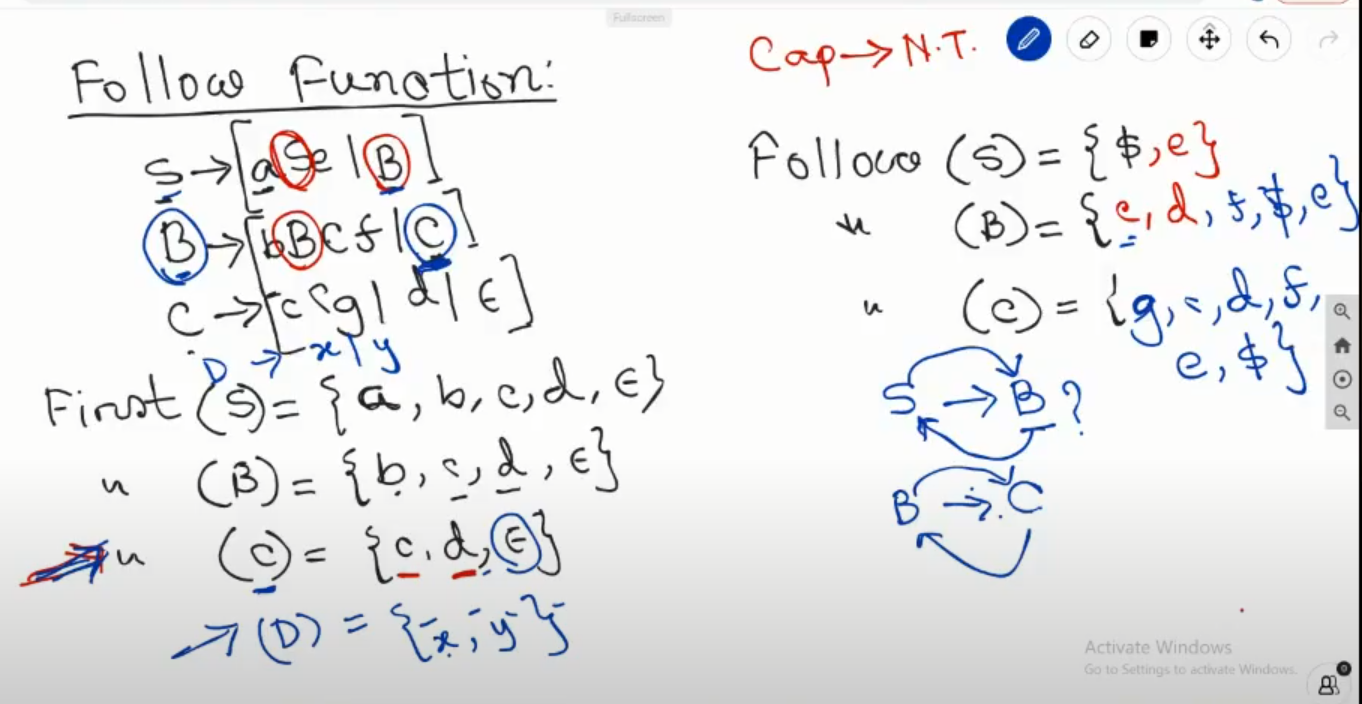 Fullscreen
Follow Function:
S → [aSe | B]
B → [bBCf | C]
C → [cCg | d | ϵ]
D → x | y
First (S) = {a, b, c, d, ϵ}
" (B) = {b, c, d, ϵ}
" (C) = {c, d, ϵ}
→ (D) = {x, y}
Cap → N.T.
Follow (S) = {$, e}
" (B) = {c, d, f, $, e}
" (C) = {g, c, d, f,
e, $}
S → B ?
B → C
Activate Windows
Go to Settings to activate Windows.